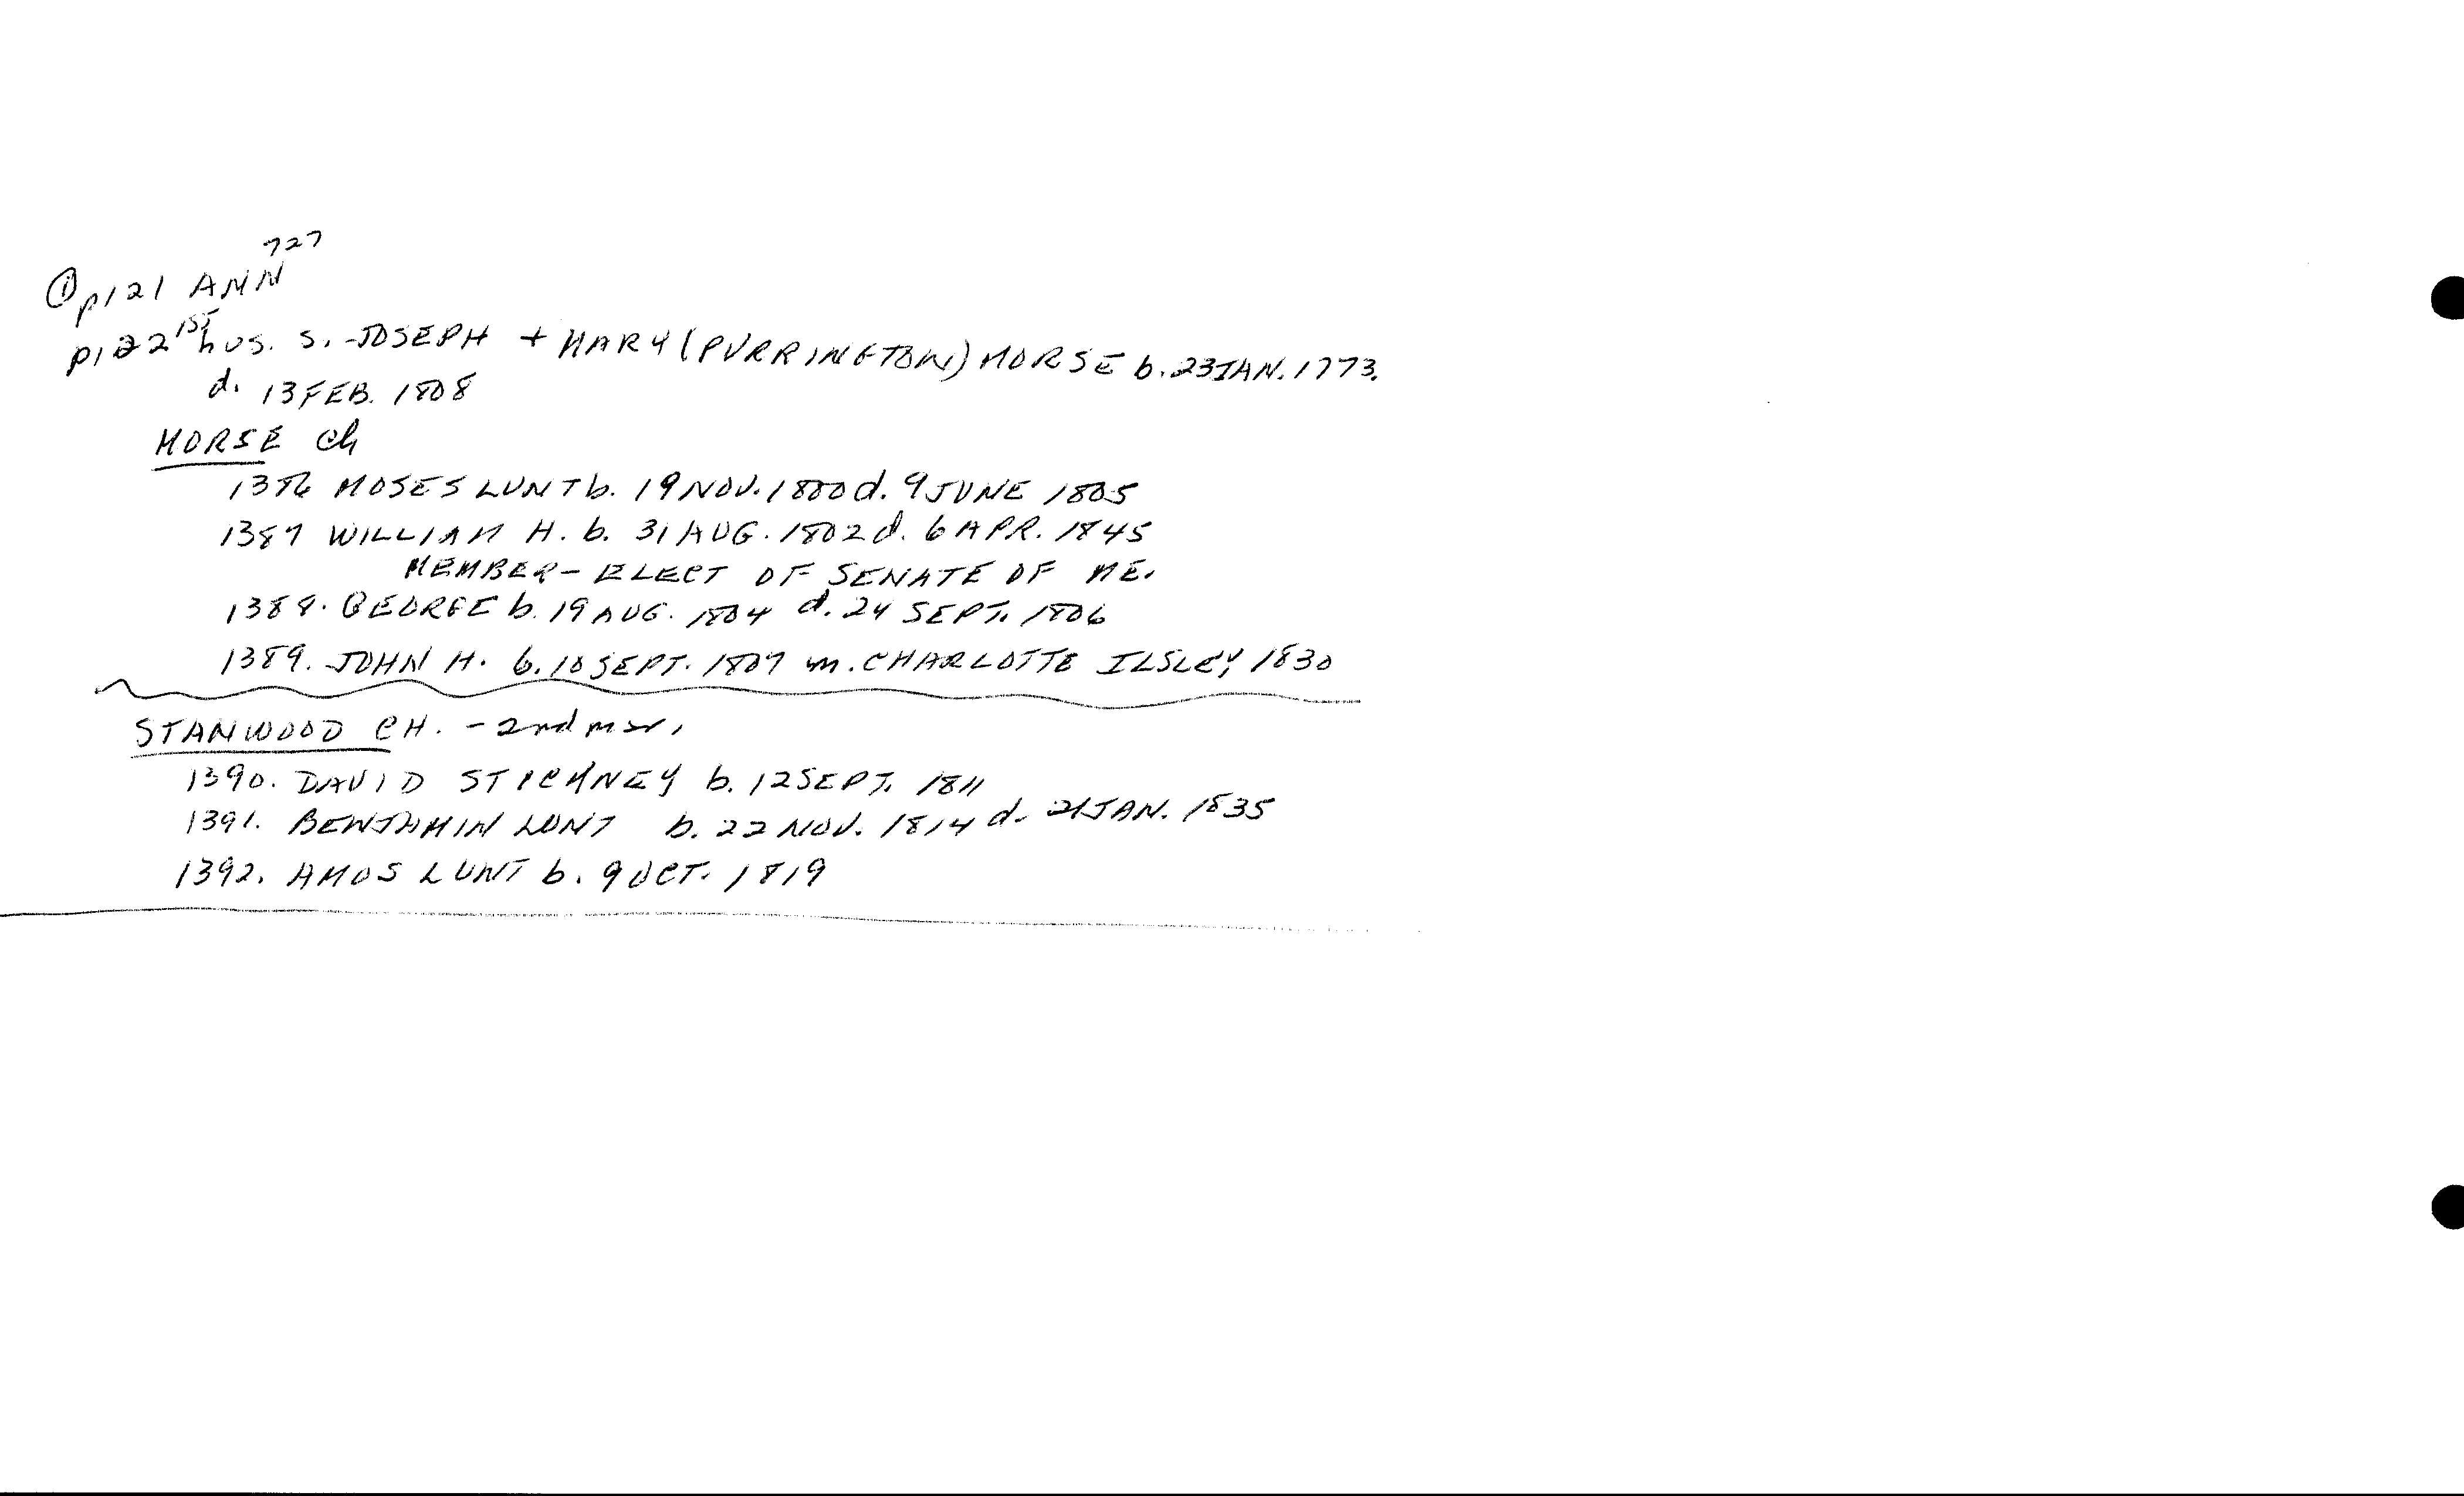 727
① p121 ANN
p122 1ST hus. s. JOSEPH + MARY (PURRINGTON) MORSE b. 23 JAN. 1773.
d. 13 FEB. 1808
MORSE Ch
1386 MOSES LUNT b. 19 NOV. 1800 d. 9 JUNE 1805
1387 WILLIAM H. b. 31 AUG. 1802 d. 6 APR. 1845
MEMBER-ELECT OF SENATE OF ME.
1388. GEORGE b. 19 AUG. 1804 d. 24 SEPT. 1806
1389. JOHN H. b. 10 SEPT. 1807 m. CHARLOTTE ILSLEY, 1830
STANWOOD CH. - 2nd mar.
1390. DAVID STICKNEY b. 12 SEPT. 1811
1391. BENJAMIN LUNT b. 22 NOV. 1814 d. 21 JAN. 1835
1392. AMOS LUNT b. 9 OCT. 1819